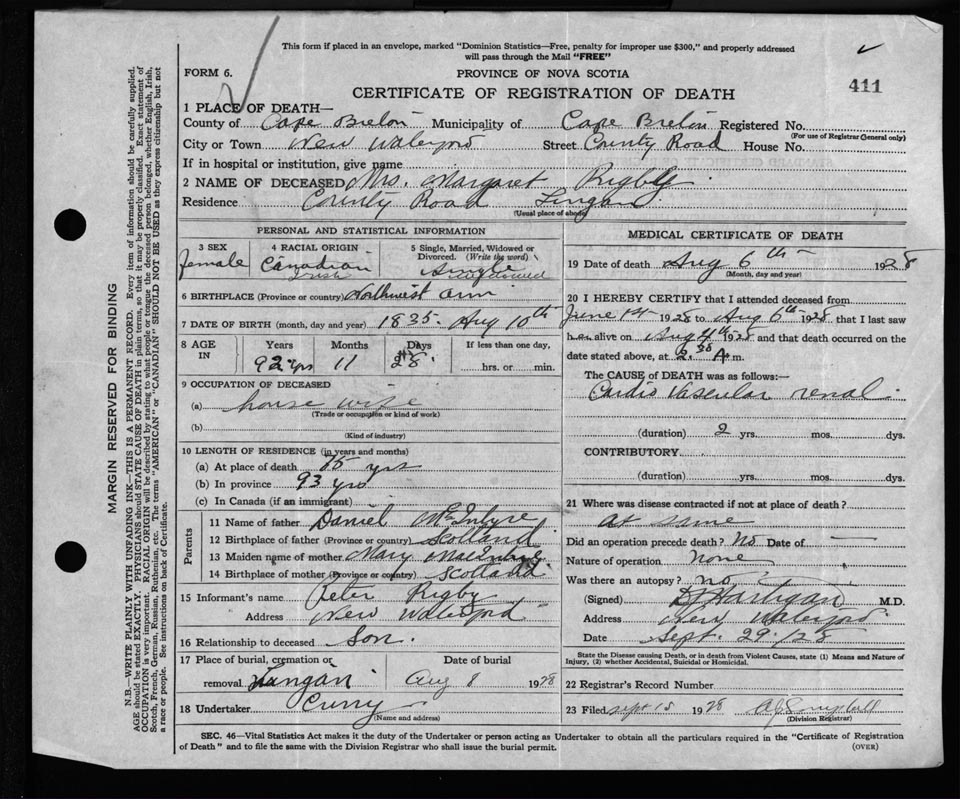 This form if placed in an envelope, marked "Dominion Statistics—Free, penalty for improper use $300," and properly addressed
will pass through the Mail "FREE"
FORM 6.
PROVINCE OF NOVA SCOTIA
411
CERTIFICATE OF REGISTRATION OF DEATH
1 PLACE OF DEATH—
County of Cape Breton Municipality of Cape Breton Registered No.
(For use of Registrar General only)
City or Town New Waterford Street County Road House No.
If in hospital or institution, give name
2 NAME OF DECEASED Mrs. Margaret Rigby
Residence County Road Lingan
(Usual place of abode)
PERSONAL AND STATISTICAL INFORMATION
3 SEX 4 RACIAL ORIGIN 5 Single, Married, Widowed or Divorced. (Write the word)
female Canadian Single
Widowed
6 BIRTHPLACE (Province or country) Northwest Arm
7 DATE OF BIRTH (month, day and year) 1835. Aug 10th
8 AGE IN Years Months Days If less than one day,
92 yrs 11 28 hrs. or min.
9 OCCUPATION OF DECEASED
(a) house wife
(Trade or occupation or kind of work)
(b)
(Kind of industry)
10 LENGTH OF RESIDENCE (in years and months)
(a) At place of death 75 yrs
(b) In province 93 yrs
(c) In Canada (if an immigrant)
Parents
11 Name of father Daniel McIntyre
12 Birthplace of father (Province or country) Scotland
13 Maiden name of mother Mary MacIntyre
14 Birthplace of mother (Province or country) Scotland
15 Informant's name Peter Rigby
Address New Waterford
16 Relationship to deceased Son.
17 Place of burial, cremation or Date of burial
removal Lingan Aug 8 1928
18 Undertaker Curry
(Name and address)
MEDICAL CERTIFICATE OF DEATH
19 Date of death Aug 6th 1928
(Month, day and year)
20 I HEREBY CERTIFY that I attended deceased from
June 1st 1928 to Aug 6th 1928 that I last saw
her alive on Aug 4th 1928 and that death occurred on the
date stated above, at 2.30 A.m.
The CAUSE of DEATH was as follows:—
Cardio Vascular renal
(duration) 2 yrs. mos. dys.
CONTRIBUTORY
(duration) yrs. mos. dys.
21 Where was disease contracted if not at place of death?
at
Did an operation precede death? No Date of —
Nature of operation none
Was there an autopsy? no
(Signed) D Hartigan M.D.
Address New Waterford
Date Sept. 29. /28
State the Disease causing Death, or in death from Violent Causes, state (1) Means and Nature of
Injury, (2) whether Accidental, Suicidal or Homicidal.
22 Registrar's Record Number
23 Filed Sept 15 1928
(Division Registrar)
SEC. 46—Vital Statistics Act makes it the duty of the Undertaker or person acting as Undertaker to obtain all the particulars required in the "Certificate of Registration
of Death" and to file the same with the Division Registrar who shall issue the burial permit.
(OVER)
MARGIN RESERVED FOR BINDING
N.B.—WRITE PLAINLY WITH UNFADING INK—THIS IS A PERMANENT RECORD. Every item of information should be carefully supplied.
AGE should be stated EXACTLY. PHYSICIANS should STATE CAUSE OF DEATH in plain terms, so that it may be properly classified. Exact statement of
OCCUPATION is very important. RACIAL ORIGIN will be described by stating to what people or tongue the deceased person belonged, whether English, Irish,
Scotch, French, German, Russian, Ruthenian, etc. The terms "AMERICAN" or "CANADIAN" SHOULD NOT BE USED as they express citizenship but not
a race or people. See instructions on back of Certificate.